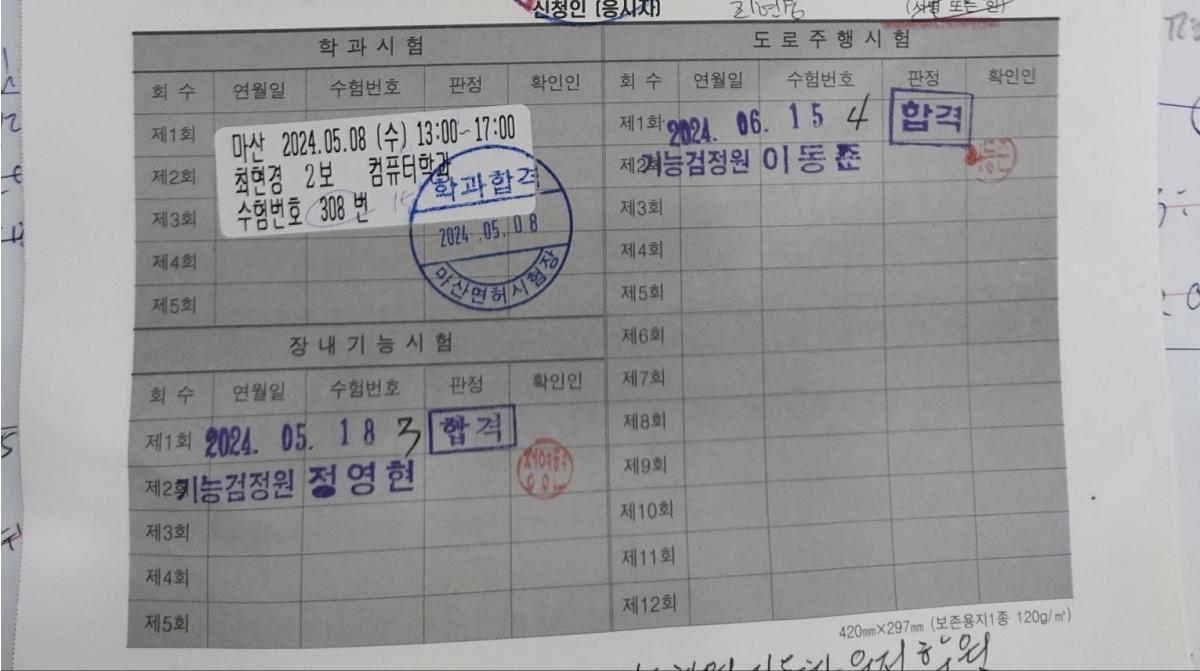 신청인 (응시자)
(서명 또는 인)
학 과 시 험
회 수 연월일 수험번호 판정 확인인
제1회
제2회
제3회
제4회
제5회
마산 2024.05.08 (수) 13:00~17:00
최현경 2보 컴퓨터학과
수험번호 308 번 15
학과합격
2024.05.08
마산면허시험장
장 내 기 능 시 험
회 수 연월일 수험번호 판정 확인인
제1회 2024. 05. 18 3 합격
제2회 기능검정원 정영현
제3회
제4회
제5회
도 로 주 행 시 험
회 수 연월일 수험번호 판정 확인인
제1회 2024. 06. 15 4 합격
제2회 기능검정원 이동준
제3회
제4회
제5회
제6회
제7회
제8회
제9회
제10회
제11회
제12회
420㎜×297㎜ (보존용지1종 120g/㎡)